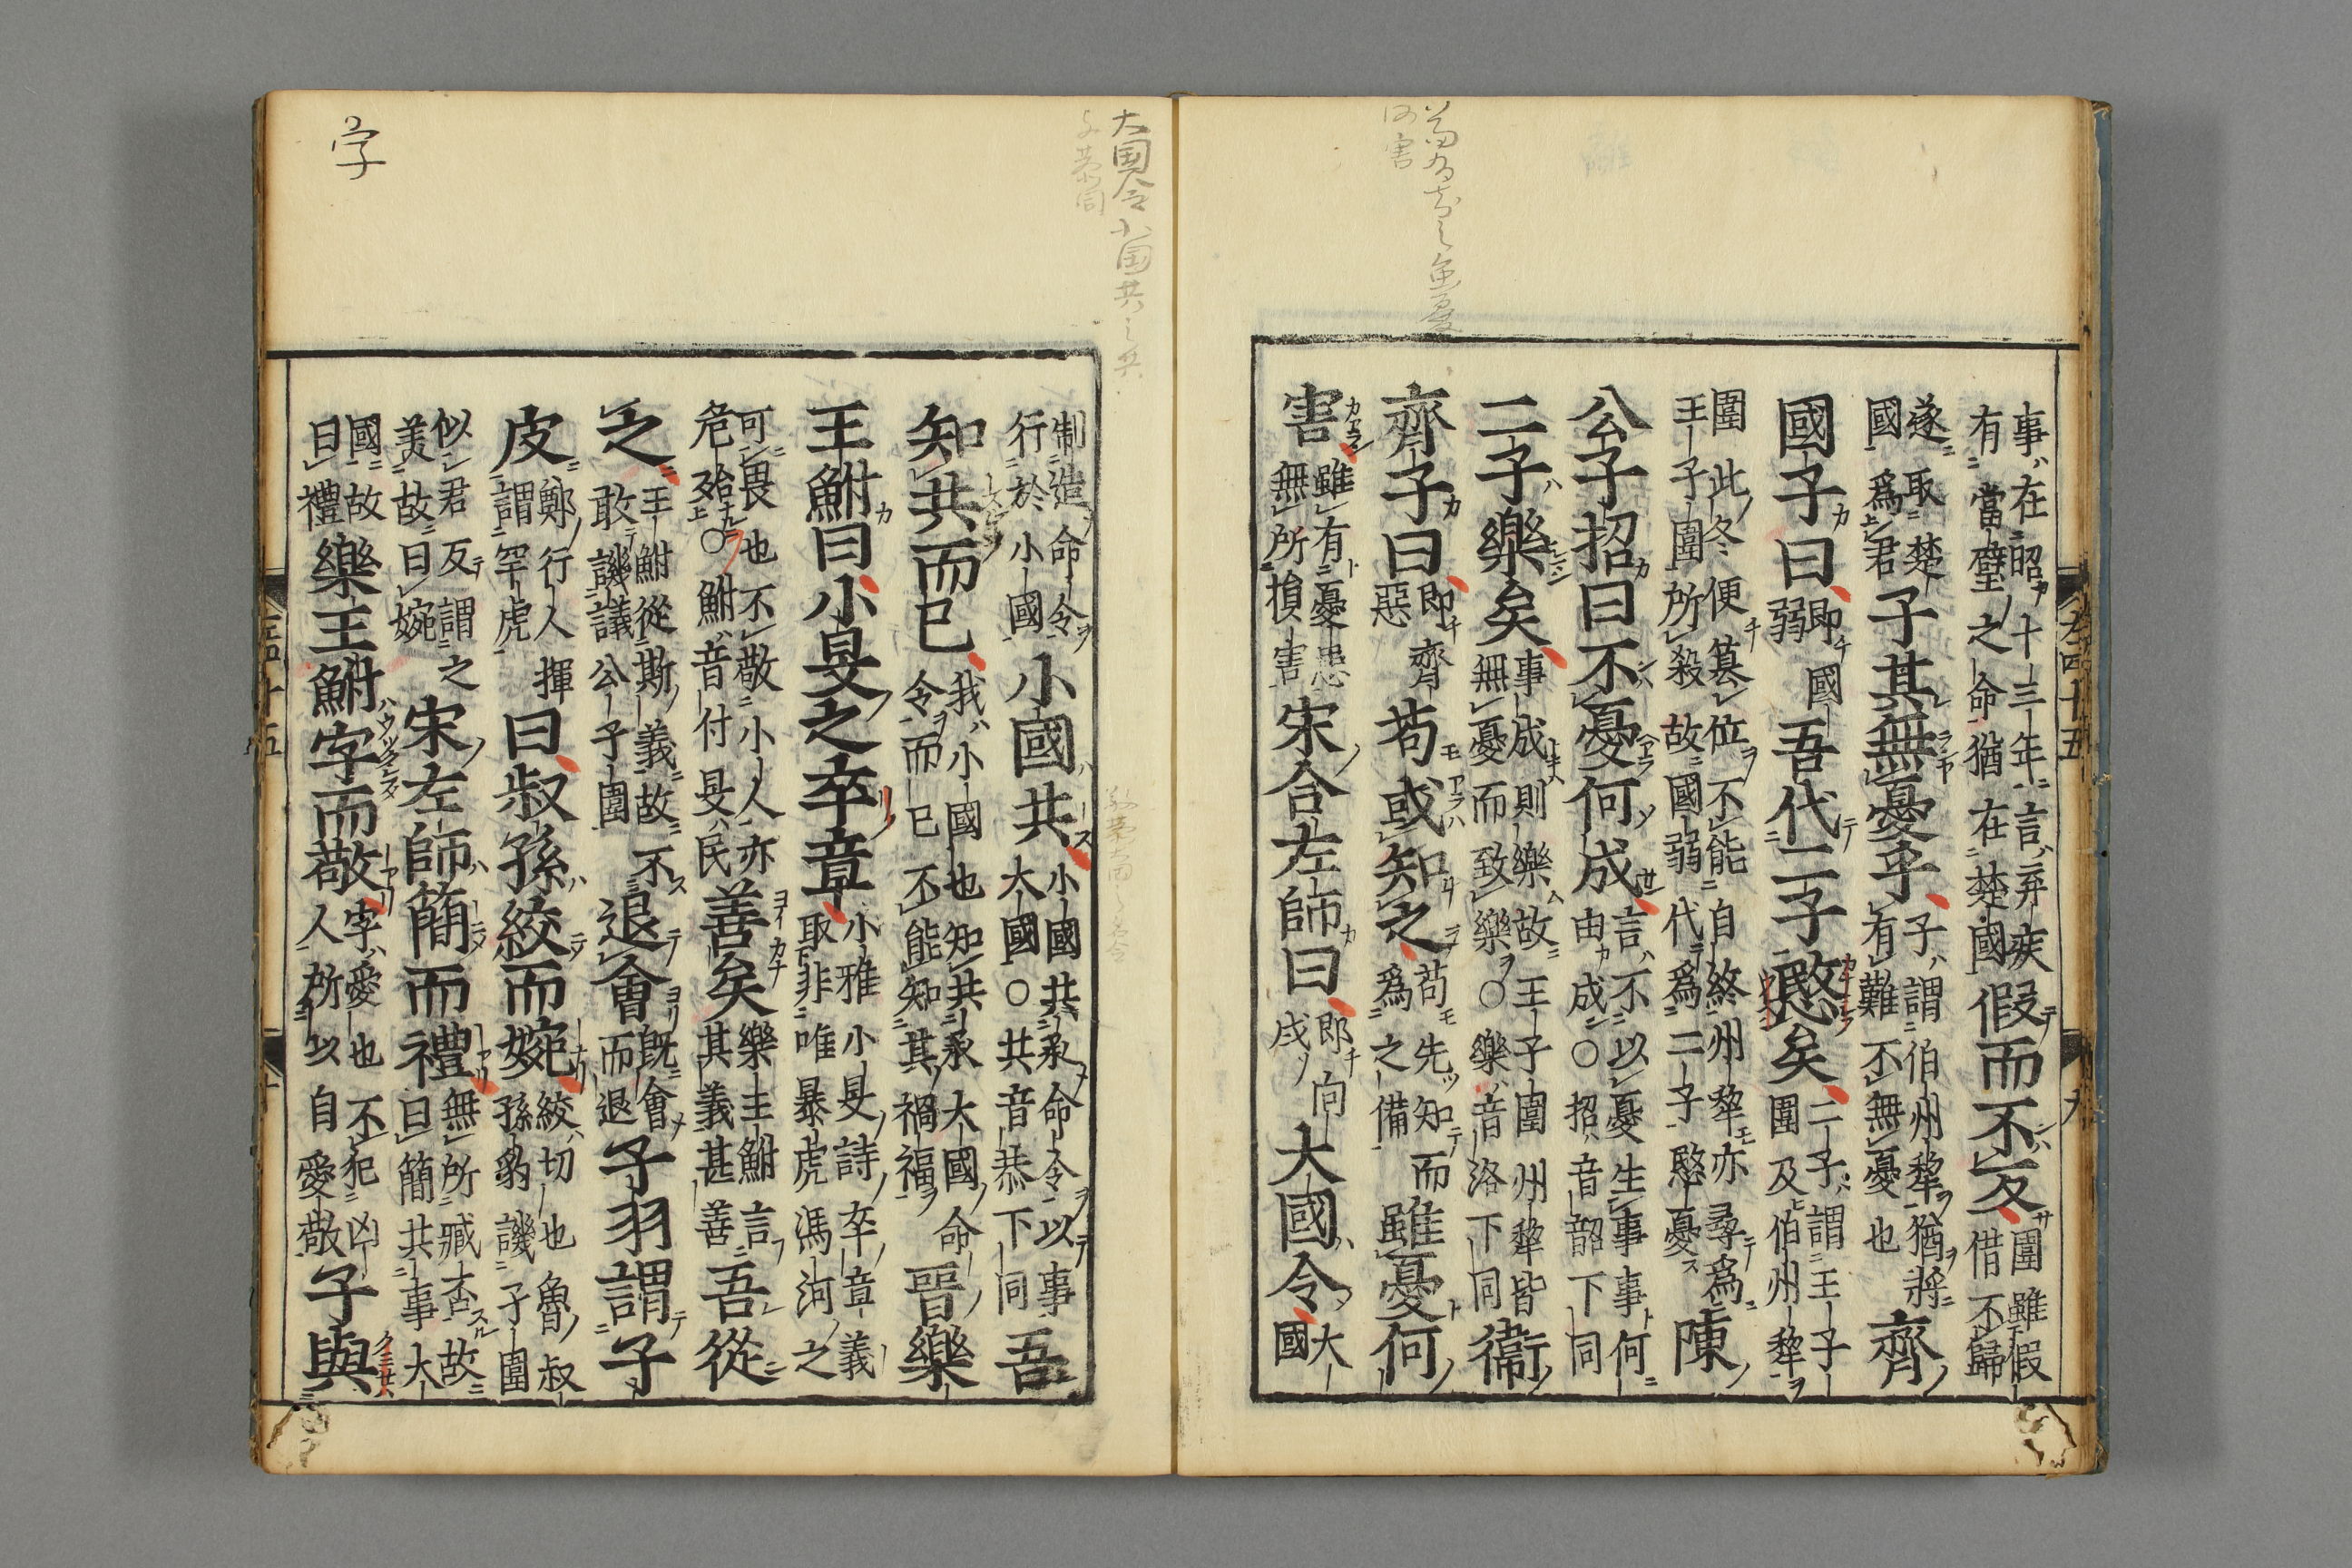 事在昭十三年言弃疾
有當璧之命猶在楚國
假而不反
圍雖假
借不歸
遂取楚
國爲君
子其無憂乎
子謂伯州犂猶將
有難不無憂也
齊
國子曰
即國
弱
吾代二子愍矣
二子謂王子
圍及伯州犂
圍此冬便簒位不能自終州犂亦尋爲
王子圍所殺故國弱代爲二子愍憂
陳
公子招曰不憂何成
言不以憂生事事何
由成○招音韶下同
二子樂矣
事成則樂故王子圍州犂皆
無憂而致樂○樂音洛下同
衞
齊子曰
即齊
惡
苟或知之
苟先知而
爲之備
雖憂何
害
雖有憂患
無所損害
宋合左師曰
即向
戌
大國令
大
國
制造命令
行於小國
小國共
小國共承命令以事
大國○共音恭下同
吾
知共而已
我小國也知共承大國命
令而已不能知其禍福
晉樂
王鮒曰小旻之卒章
小雅小旻詩卒章義
取非唯暴虎馮河之
可畏也不敬小人亦
危殆○鮒音付旻民
善矣
樂王鮒言
其義甚善
吾從
之
王鮒從斯義故不
敢譏議公子圍
退會
既會
而退
子羽謂子
皮
鄭行人揮
謂罕虎
曰叔孫絞而婉
絞切也魯叔
孫豹譏子圍
似君反謂之
美故曰婉
宋左師簡而禮
無所臧否故
曰簡共事大
國故
曰禮
樂王鮒字而敬
字愛也不犯凶
人所以自愛敬
子與
左四十五
九
左四十五
十
字
大国令小国共之共